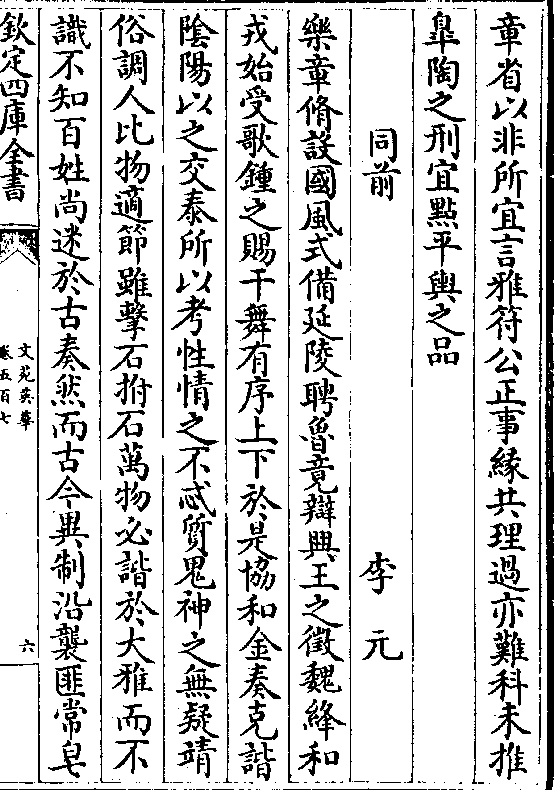 章省以非所宜言雅符公正事縁共理過亦難科未推
臯陶之刑宜㸃平輿之品
同前　李元
樂章脩設國風式備延陵聘魯竟辯興王之徴魏絳和
戎始受歌鍾之賜干舞有序上下於是協和金奏克諧
陰陽以之交泰所以考性情之不忒質鬼神之無疑靖
俗調人比物適節雖擊石拊石萬物必諧於大雅而不
識不知百姓尚迷於古奏然而古今異制沿襲匪常皂
欽定四庫全書
文苑英華
卷五百七
六